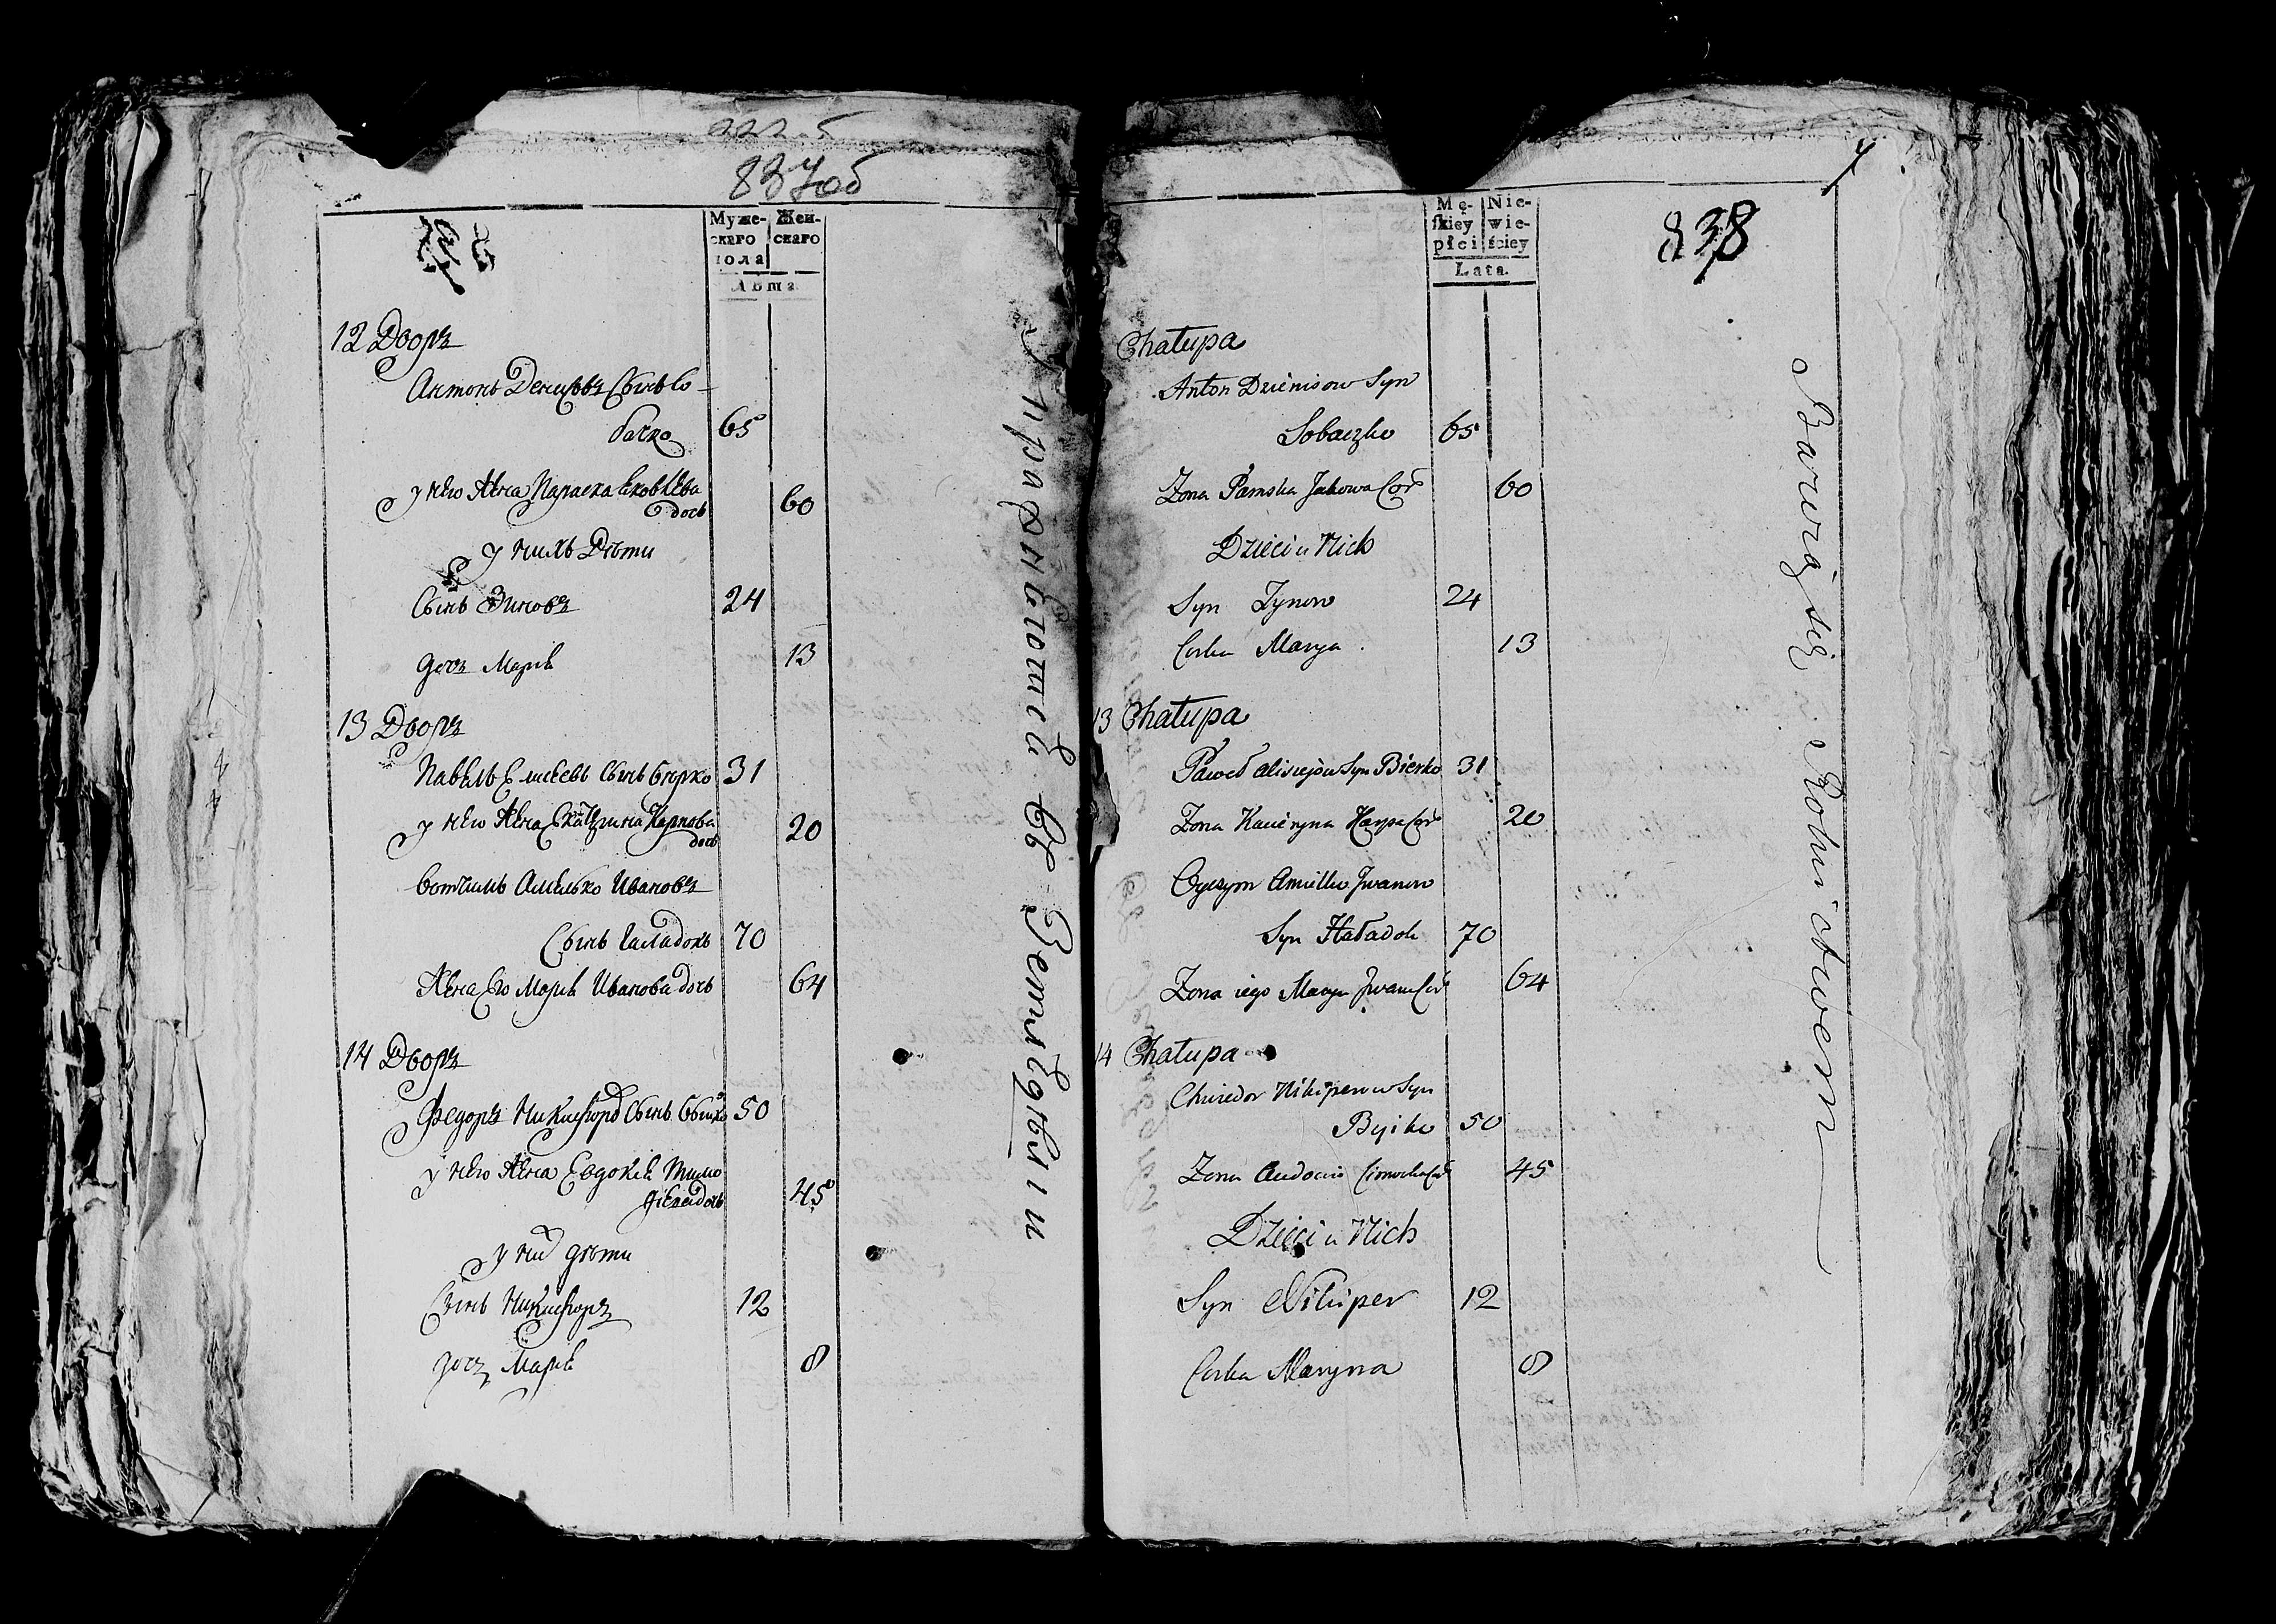 837об
Муже-
скаго
пола
Жен-
скаго
Лѣта
12 Дворъ
Антонъ Денисовъ Сынъ Со-
бачко 65
у него Жена Параска Яковлева
дочь 60
у нихъ Дѣти
Сынъ Зиновъ 24
дочь Марья 13
13 Дворъ
Павелъ Елисеевъ Сынъ Бирко 31
у него Жена Екатерина Карпова
дочь 20
вотчимъ Амелько Ивановъ
Сынъ Галадокъ 70
Жена Его Марья Иванова дочь 64
14 Дворъ
Федоръ Никифоровъ Сынъ 50
у него Жена Евдокия Тимо
феева дочь 45
у них дѣти
Сынъ Никифоръ 12
дочь Марья 8
въ Земледѣлiи
838
Mę-
skiey
płci
Nie-
wie-
ściey
Lata.
Chałupa
Anton Dzienisow Syn
Sobaczko 65
Zona Paraska Jakowa Cor 60
Dzieci u Nich
Syn Zynow 24
Corka Marya 13
13 Chałupa
Paweł Alisiejow Syn Bierko 31
Zona Kacieryna Karpa Cor 20
Oyczym Amielko Jwanow
Syn Haładok 70
Zona iego Marya Jwana Cor 64
14 Chałupa
Chwiedor Nikiperow Syn
Byiko 50
Zona Audocia Cimocha Cor 45
Dzieci u Nich
Syn Nikiper 12
Corka Maryna 8
Bawią się Rolnictwem